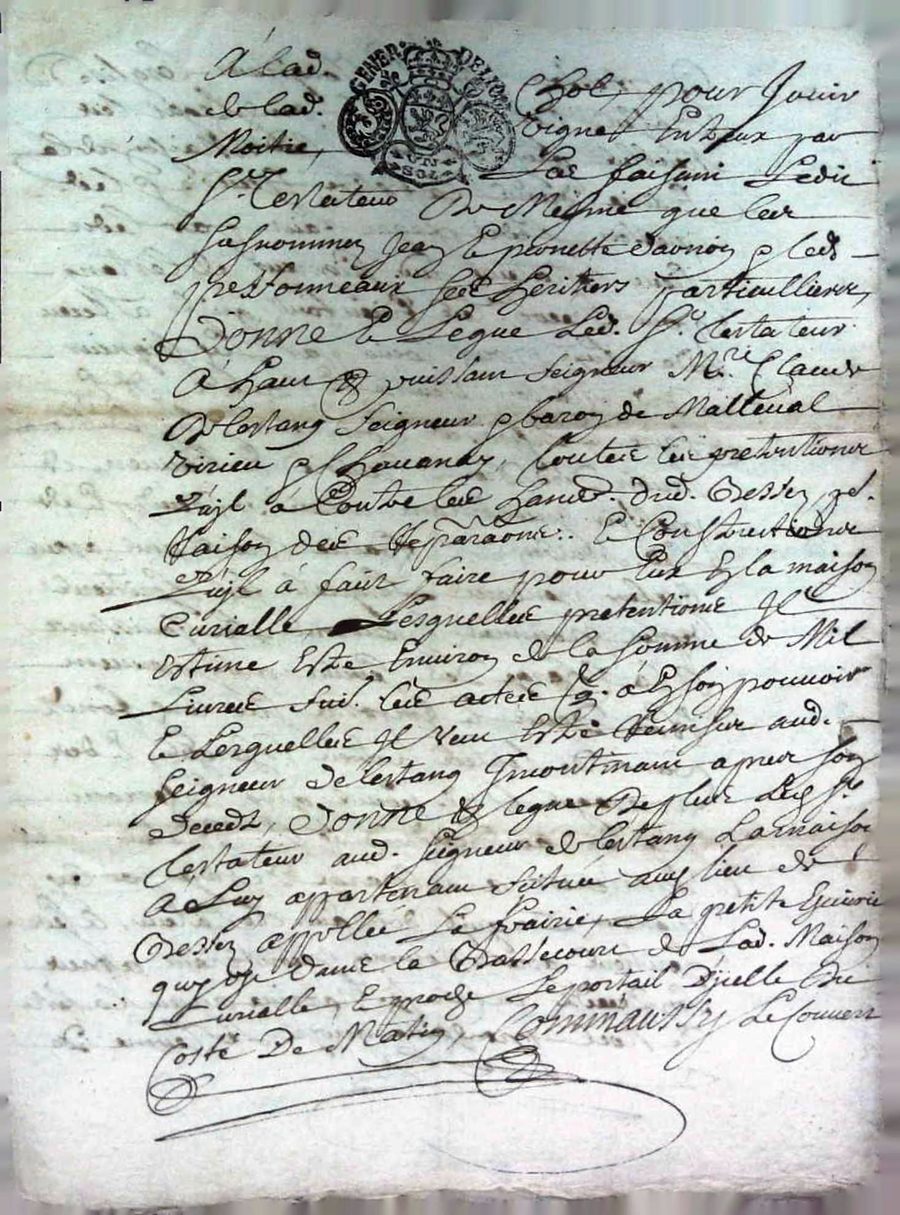 A lad. Chol, pour Jouir
de lad. vigne Entreux par
Moitie,
Sr. Testateur De Mesme que les
susnommez Jean
personneaux ses heritiers particulliers,
Donne & Legue Led. Sr. Testateur
A haut & puissant seigneur Mre. Claude
De Lestang Seigneur & baron de Malleval
Virieu & Chavanay, toutes les pretentions
qu'jl a Contre les hans. dud. Bessey
Raison des Reparaons. & Constructions
qu'jl a fait faire pour Eux En la maison
Curialle, Lesquelles pretentions Jl
Estime Estre Environ de la somme de Mil
Livres suiv. les actes q. a En son pouvoir
& Lesquelles Jl veut Estre Remise aud.
Seigneur de lestang apres son
Decedz, Donne & legue De plus Led. Sr.
Testateur aud. Seigneur de lestang La maison
A Luy appartenant scituée aud. lieu de
Bessey appellée La frairie, La petite Ecuirie
quy est dans la Bassecourt de Lad. Maison
Curialle, & proche Le portail D'jcelle Du
Costé De Matin, Le Couvert
GENER. DE LYON
UN
SOL